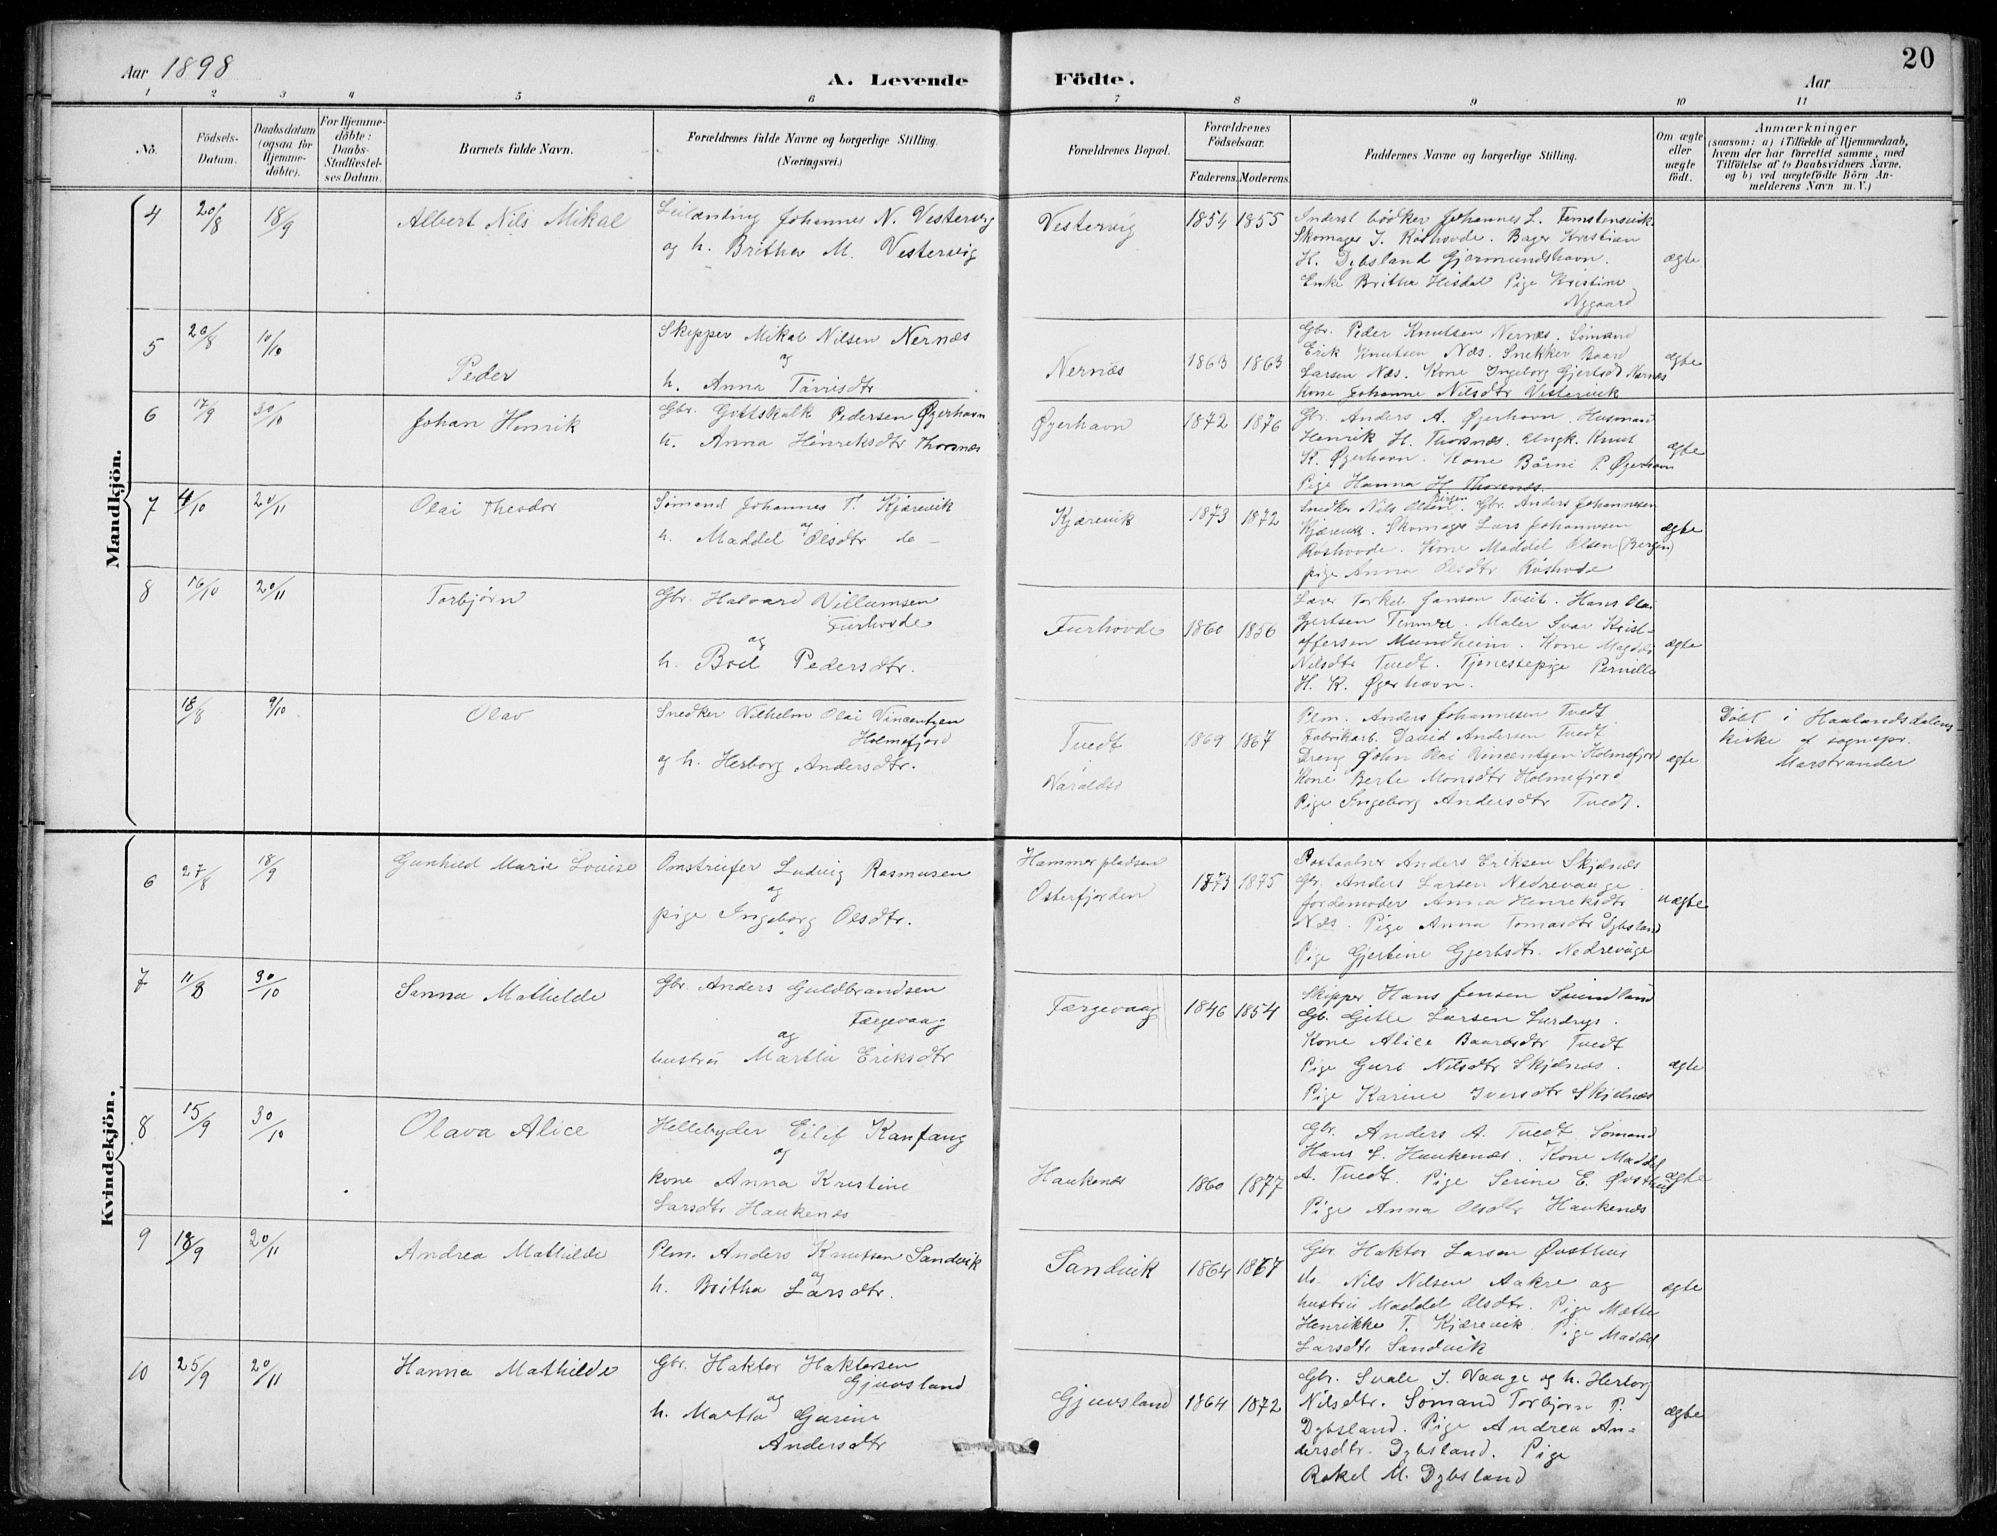 Aar 1898
A. Levende Födte.
Aar
20
1 2 3 4 5 6 7 8 9 10 11
No.
Födsels-Datum.
Daabsdatum (ogsaa for Hjemme-döbte).
For Hjemme-döbte: Daabs-Stadfæstel-ses Datum.
Barnets fulde Navn.
Forældrenes fulde Navne og borgerlige Stilling. (Næringsvei.)
Forældrenes Bopæl.
Forældrenes Födselsaar.
Faderens. Moderens.
Faddernes Navne og borgerlige Stilling.
Om ægte eller uægte födt.
Anmærkninger
(saasom: a) i Tilfælde af Hjemmedaab, hvem der har forrettet samme, med Tilföielse af to Daabsvidners Navne. og b) ved uægtefödte Börn An-melderens Navn m. V.)
Mandkjön.
4 20/8 18/9 Albert Nils Mikal
Leilænding Johannes N. Vestervig
og h. Britha M. Vestervig
Vestervig 1854 1855
Skomager J. Røshovde. Bager Kristian
H. Dybsland Gjermundshavn.
Enke Britha Hisdal Pige Kristine
Nygaard
ægte
5 20/8 10/10 Peder
Skipper Mikal Nilsen Nernæs
og
h. Anna Tørrisdtr
Nernæs 1863 1863
Gbr. Peder Knutsen Nernæs. Sømand
Erik Knutsen Næs. Snekker Baard
Larsen Næs. Kone Ingeborg Gjertsd Nernæs
Kone Johanne Nilsdtr Vestervik
ægte
6 17/9 30/10 Johan Henrik
Gbr. Gottskalk Pedersen Øyerhavn
h. Anna Henriksdtr Thorsnæs
Øyerhavn 1872 1876
Gbr. Anders A. Øyerhavn Husmand
Henrik H. Thorsnæs. Ungk. Knut
K. Øyerhavn. Kone Børni P. Øyerhavn
Pige Hanna H. Thorsnæs
ægte
7 4/10 20/11 Olai Theodor
Sømand Johannes T. Kjærevik
og
h. Maddel Olsdtr do -
Kjærevik 1873 1872
Snedkr Nils Olsen Bergen. Gbr. Anders Johannesen
Kjærevik. Skomager Lars Johannesen
Røshovde. Kone Maddel Olsen (Bergen)
pige Anna Olsdtr Røshovde
ægte
8 16/10 20/11 Torbjørn
Gbr. Halvard Villumsen
Furhovde
og
h. Boel Pedersdtr.
Furhovde 1860 1856
Lærer Torkel Jansen Tveit. Hans Olai
Gjertsen Timmer. Maler Ivar Krist-
offersen Mundheim. Kone Magdel
Nilsdtr Tvedt. Tjenestepige Pernille
H. K. Øyerhavn.
ægte
18/8 9/10 Olav
Snedker Vilhelm Olai Vincentsen
Holmefjord
og h. Herborg Andersdtr.
Tvedt
Varaldsø 1869 1867
Plm. Anders Johannesen Tvedt
Fabrikarb. David Andersen Tvedt
Dreng John Olai Vincentsen Holmefjord
Kone Berte Monsdtr Holmefjord
Pige Ingeborg Andersdtr Tvedt.
ægte
Døbt i Haalandsdalens
kirke af sognepr.
Marstrander
Kvindekjön.
6 27/8 18/9 Gunhild Marie Louise
Omstreifer Ludvig Rasmusen
og
pige Ingeborg Olsdtr.
Hammerpladsen
Osterfjorden 1873 1875
Postaabner Anders Eriksen Skjelnæs
Gbr. Anders Larsen Nedrevaage
Jordemoder Anna Henriksdtr
Næs. Pige Anna Tomasdtr Dybsland
Pige Gjertine Gjertsdtr. Nedrevåge
uægte
7 11/8 30/10 Sanna Mathilde
Gbr. Anders Guldbrandsen
Færgevaag
og
hustru Martha Eriksdtr
Færgevaag 1846 1854
Skipper Hans Jensen Sundland
Gb. Gitle Larsen
Kone Alice Baardsdtr Tvedt
Pige Guro Nilsdtr Skjelnæs.
Pige Karine Iversdtr Skjelnæs
ægte
8 15/9 30/10 Olava Alice
Hellebyder Eilif Kanfang
og
kone Anna Kristine
Larsdtr Haukenæs
Haukenæs 1860 1877
Gbr. Anders A. Tvedt Sømand
Hans L. Haukenæs. Kone Maddel
A. Tvedt. Pige Serine E. Øvsthus
Pige Anna Olsdtr Haukenæs
ægte
9 18/9 20/11 Andrea Mathilde
Plm. Anders Knutsen Sandvik
og
h. Britha Larsdtr.
Sandvik 1864 1867
Gbr. Haktor Larsen Øvsthus
do. Nils Nilsen Aakre og
hustru Maddel Olsdtr. Pige Mette
Henrikke T. Kjærevik. Pige Maddel
Larsdtr Sandvik
ægte
10 25/9 20/11 Hanna Mathilde
Gbr. Haktor Haktorsen
Gjuvsland
og
h. Martha Gurine
Andersdtr
Gjuvsland 1864 1872
Gbr. Svale J. Vaage og h. Herborg
Nilsdtr. Sømand Torbjørn P.
Dybsland. Pige Andrea An-
dersdtr. Dybsland. Pige
Rakel M. Dybsland
ægte